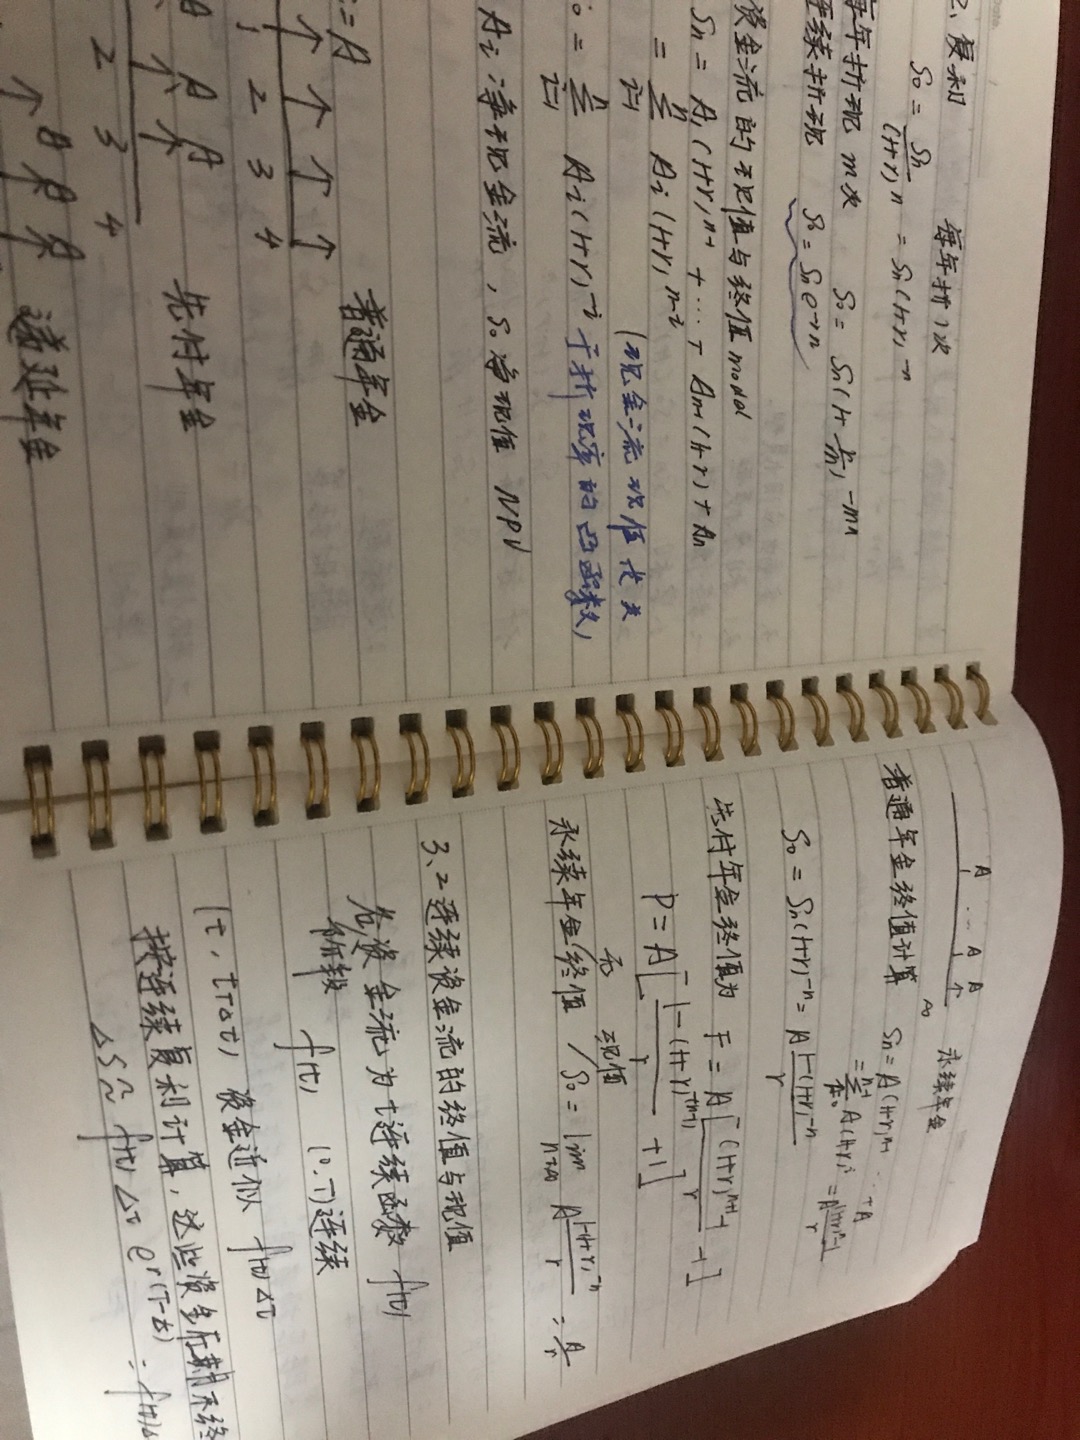 2、复利 每年折1次
S0 = Sn/(1+r)n = Sn(1+r)-n
每年折现 m次 S0 = Sn(1+ r/m)-mn
连续折现 S0 = Sn e-rn
资金流的现值与终值 model
Sn = A1(1+r)n-1 + ... + An-1(1+r) + An
= n∑i=1 Ai(1+r)n-i
(现金流现值是关
= n∑i=1 Ai(1+r)-i 于折现率的凸函数)
Ai 净现金流, S0 净现值 NPV
= A 普通年金
↑ ↑ ↑ ↑
1 2 3 4
A A A 先付年金
2 3 4
↑ A A A 递延年金
A ... A A 永续年金
普通年金终值计算 Sn = A(1+r)n-1 ... + A
= n-1∑ A(1+r)i = A (1+r)n-1 / r
S0 = Sn(1+r)-n = A 1-(1+r)-n / r
先付年金终值为 F = A[ (1+r)n+1-1 / r -1 ]
P = A[ 1-(1+r)-(n-1) / r +1 ]
永续年金(终值无 / 现值 S0 = lim n→∞ A 1-(1+r)-n / r = A/r
3、2 连续资金流的终值与现值
若资金流为t连续函数 f(t)
f(t) (0,T)连续
(t, t+Δt) 资金近似 f(t)Δt
按连续复利计算, 这些资金在期末终
ΔS ≈ f(t) Δt er(T-t) = f(t)Δ